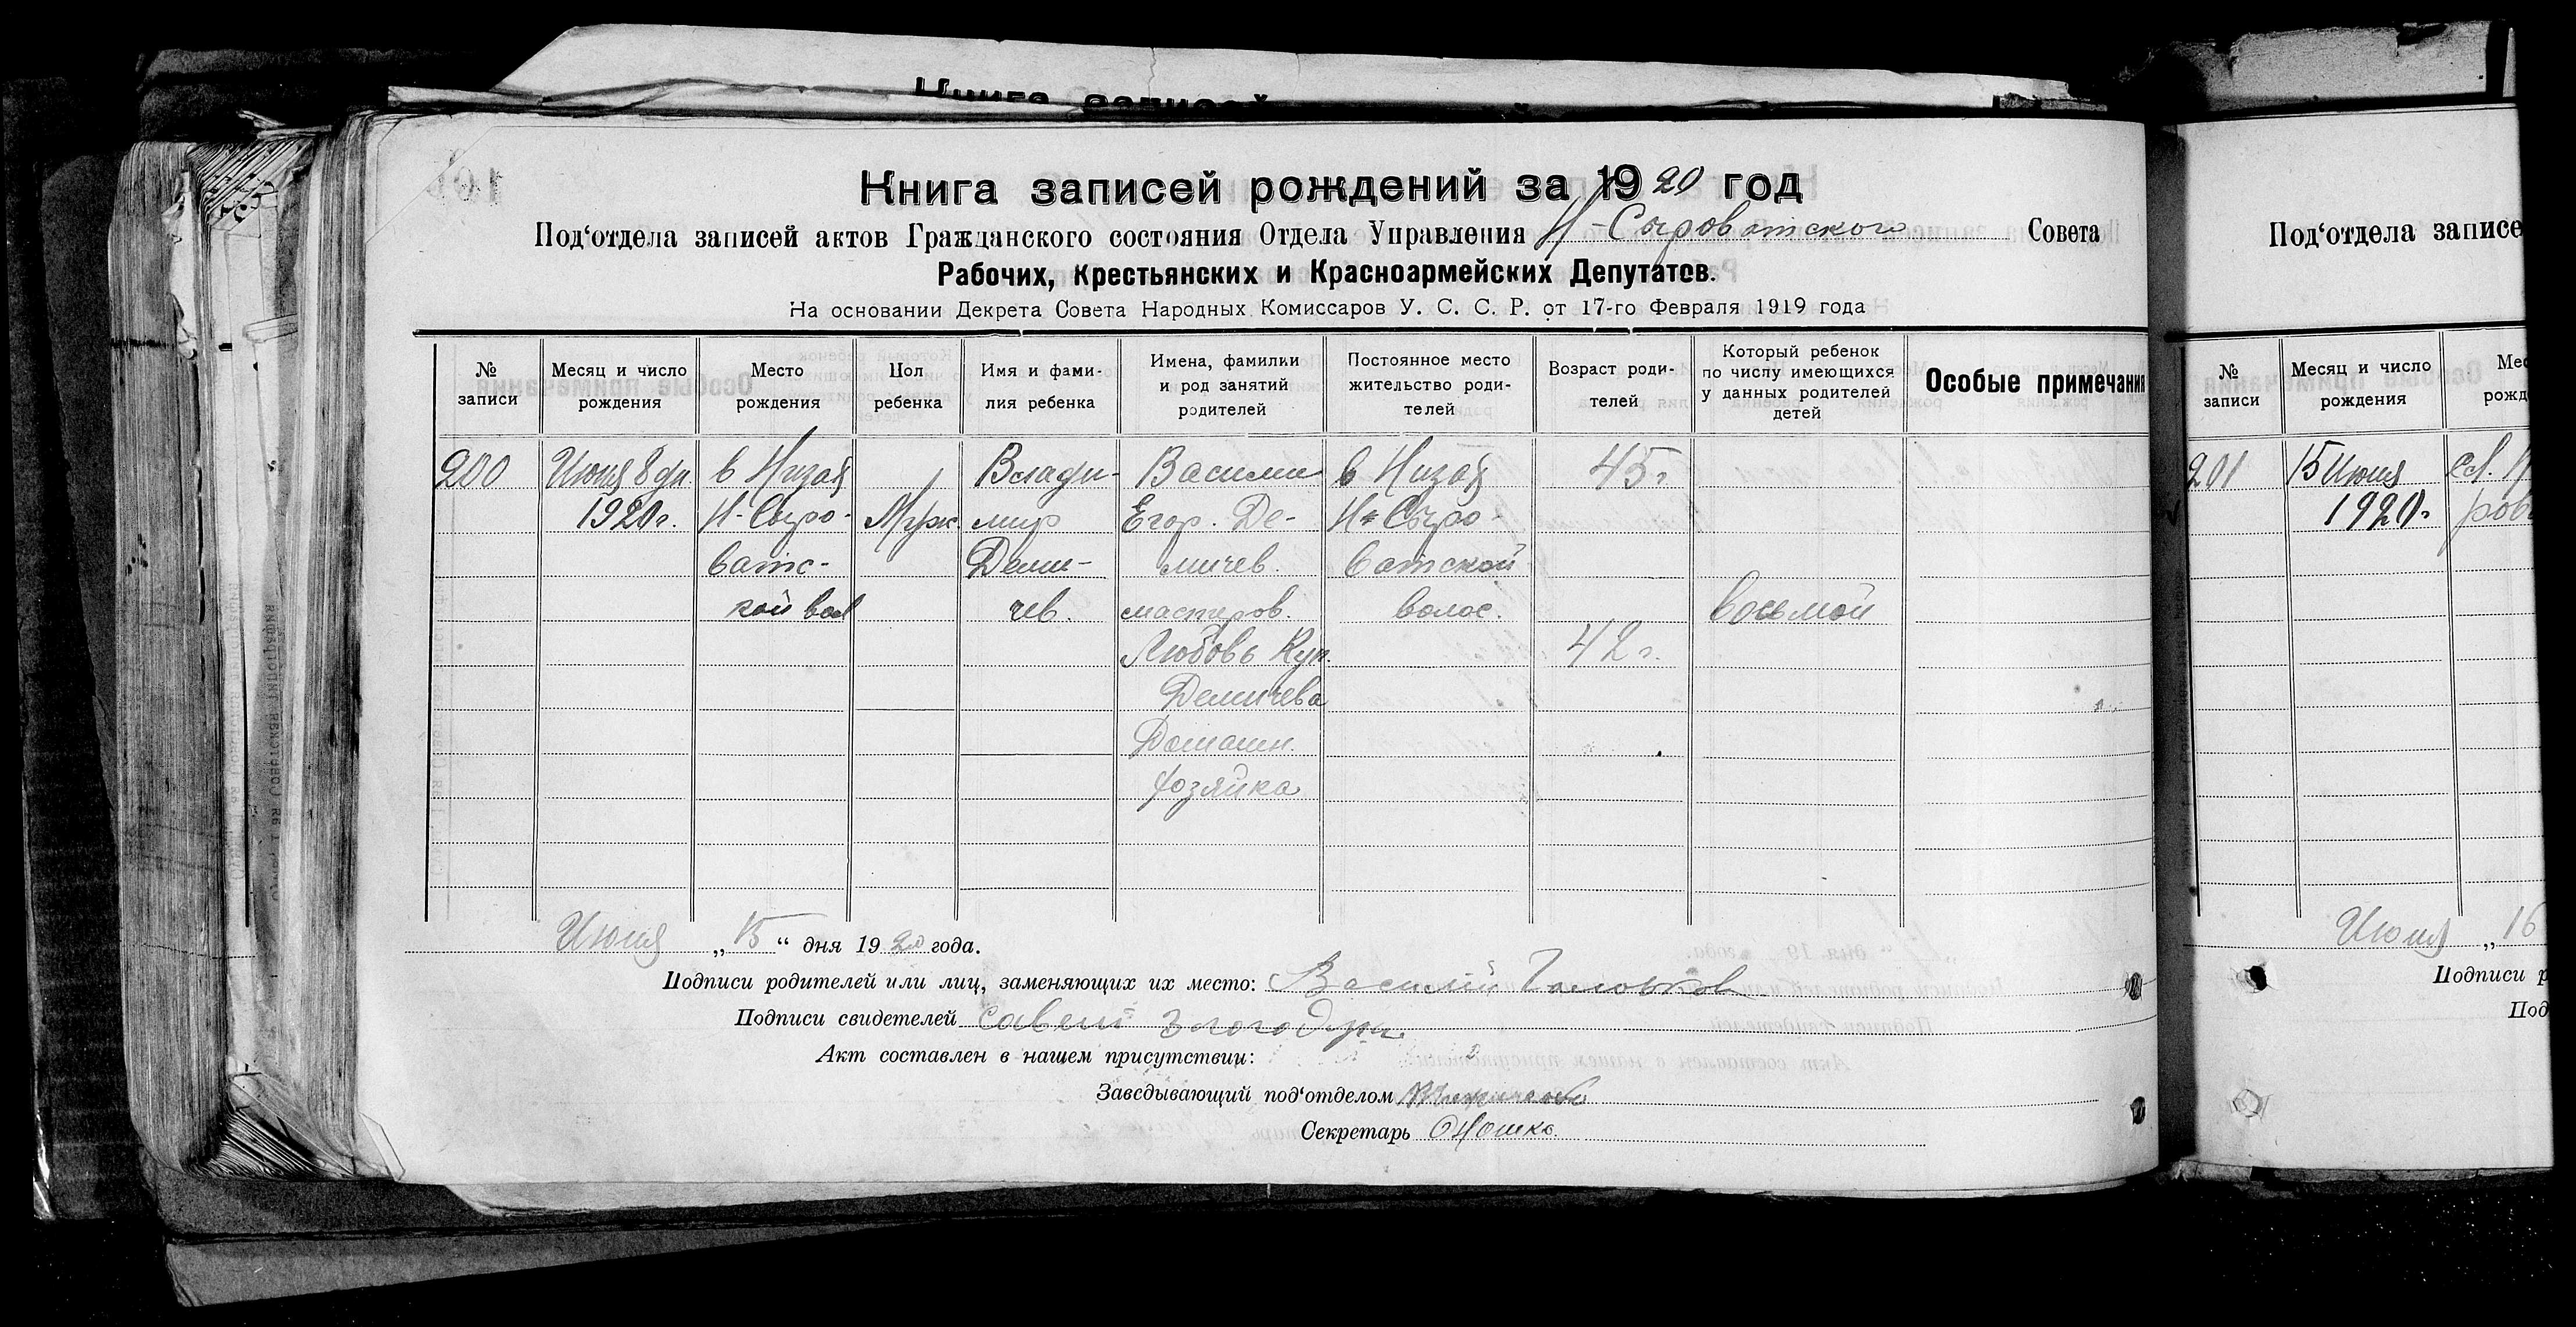 Книга записей
Книга записей рождений за 1920 год
Под‘отдела записей актов Гражданского состояния Отдела Управления Н-Сыроватского Совета
Рабочих, Крестьянских и Красноармейских Депутатов.
На основании Декрета Совета Народных Комиссаров У. С. С. Р. от 17-го Февраля 1919 года
№ записи
Месяц и число рождения
Место рождения
Пол ребенка
Имя и фами-
лия ребенка
Имена, фамилии
и род занятий
родителей
Постоянное место
жительство роди-
телей
Возраст роди-
телей
Который ребенок
по числу имеющихся
у данных родителей
детей
Особые примечания
200
Июня 8 дн.
1920 г.
в
Н-Сыро-
ватс-
кой вол
Муж.
Влади-
мир
Деми-
чев.
Васили
Егор. Де-
мичев.
мастеров.
Любовь Куп.
Демичева
Домашн.
хозяйка
в
Н-Сыро-
ватской
волос.
45 г
42 г.
восьмой
Июня „15“ дня 1920 года.
Подписи родителей или лиц, заменяющих их место: Василий
Подписи свидетелей Савелий
Акт составлен в нашем присутствии:
Заведывающий под‘отделом
Секретарь
Под‘отдела записе
№
записи
Месяц и число
рождения
Мес
рожд
201
15 Июня
1920 г
сл. Н
рова
Июня „16
Подписи р
Под